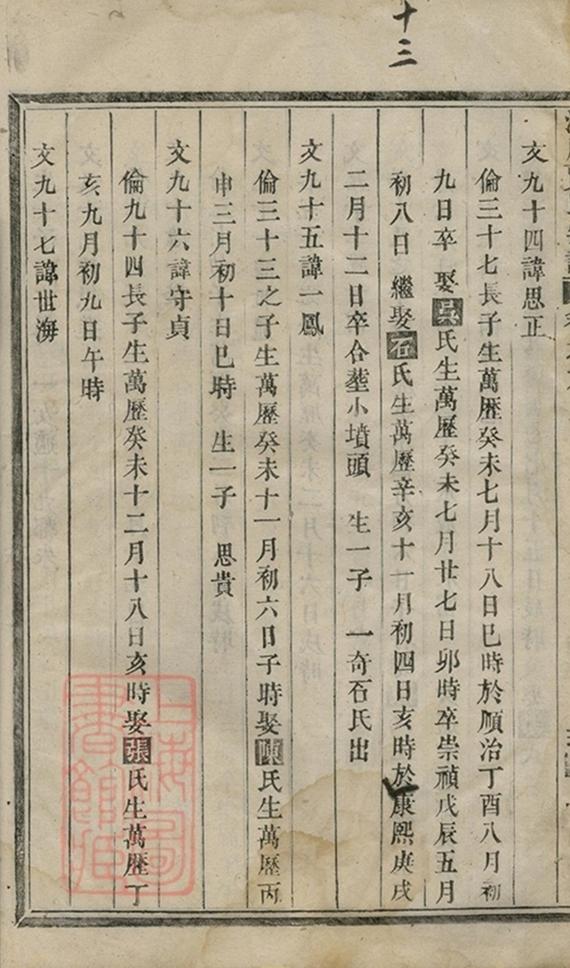 十三
文九十四諱思正
倫三十七長子生萬歷癸未七月十八日巳時於順治丁酉八月初
九日卒 娶吳氏生萬歷癸未七月廿七日卯時卒崇禎戊辰五月
初八日 繼娶石氏生萬歷辛亥十一月初四日亥時於康熙庚戌
二月十二日卒合塟小墳頭 生一子 一奇石氏出
文九十五諱一鳳
倫三十三之子生萬歷癸未十一月初六日子時娶陳氏生萬歷丙
申三月初十日巳時 生一子 思貴
文九十六諱守貞
倫九十四長子生萬歷癸未十二月十八日亥時娶張氏生萬歷丁
亥九月初九日午時
文九十七諱世海